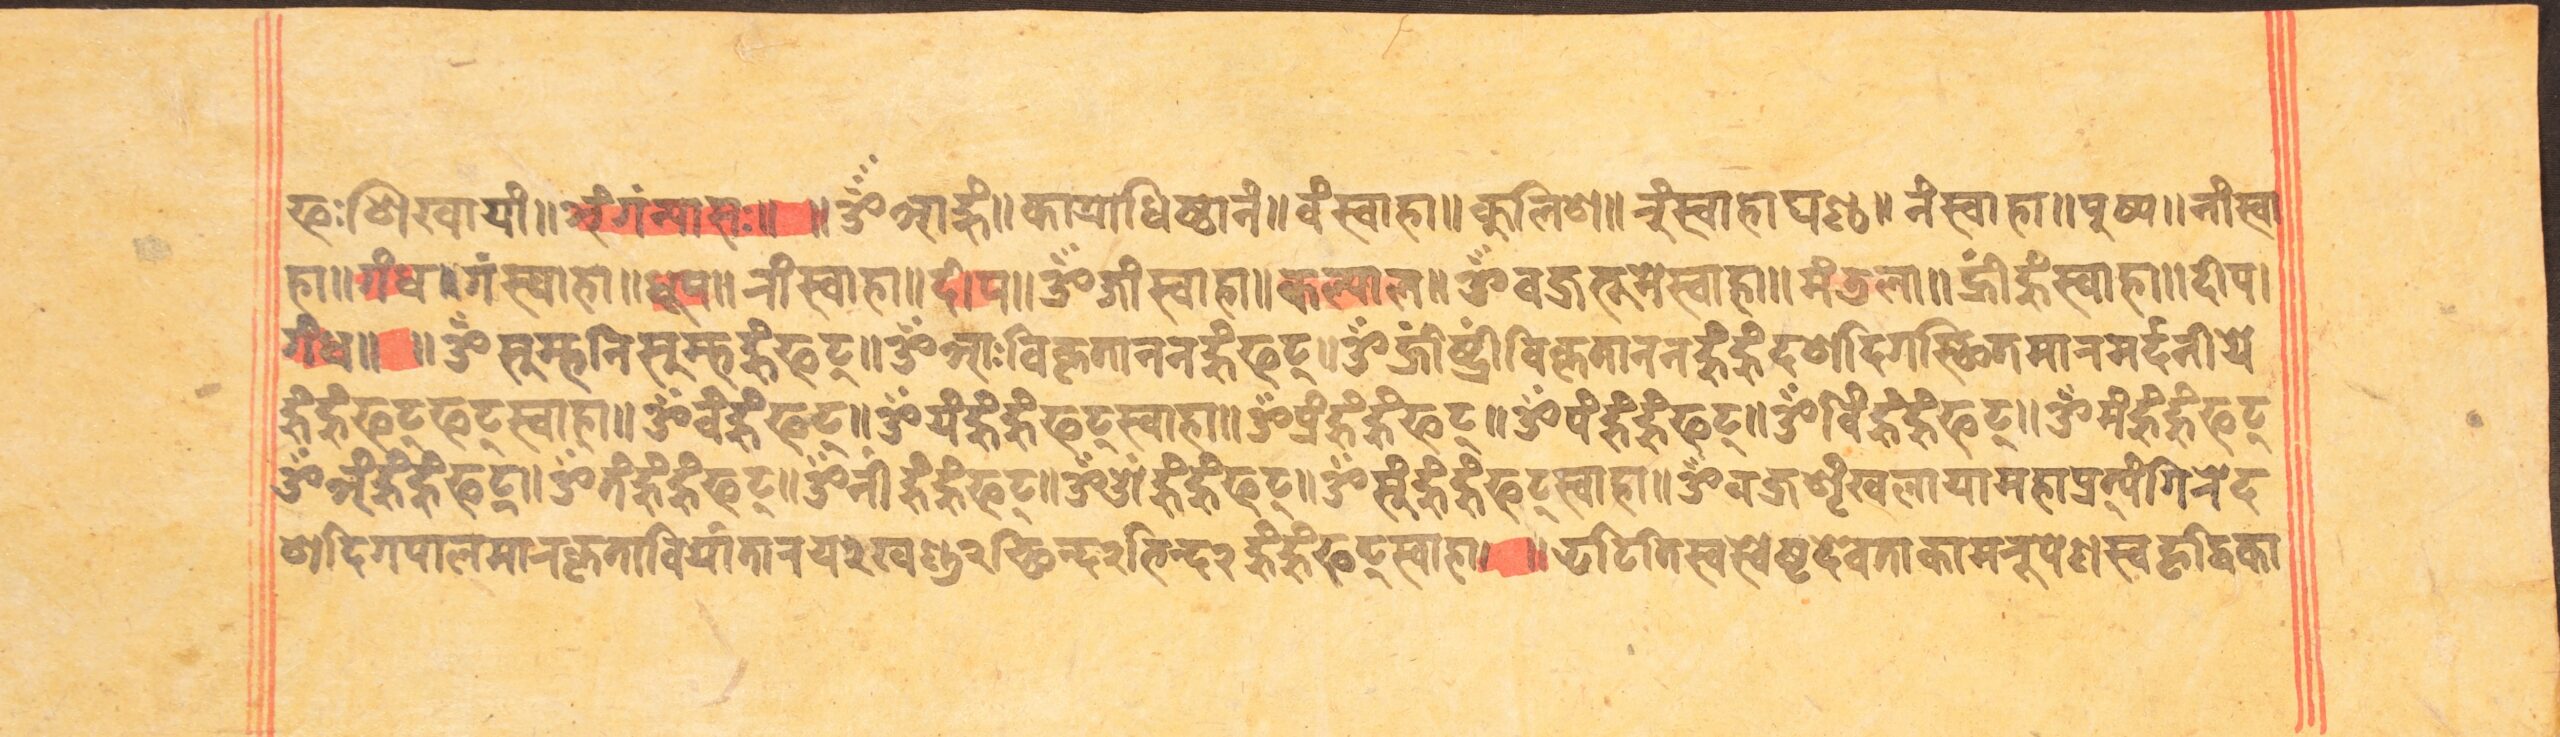 फः शिखायां॥ अंगंन्यासः॥ ॥ ॐ आः हुँ॥ कायाधिष्ठानं॥ वं स्वाहा॥ कुलिश॥ नुं स्वाहा घण्ठ॥ नं स्वाहा॥ पुष्प॥ नीं स्वा
हा॥ गंध॥ गं स्वाहा॥ धूप॥ नीं स्वाहा॥ दीप॥ ॐ जीं स्वाहा॥ कल्पाल॥ ॐ वज्रभूमे स्वाहा॥ मंतला॥ ह्रीं हुँ स्वाहा॥ दीप।
गंध॥ ॥ ॐ सुम्हनि सुम्ह हुँ फट्॥ ॐ आः विकृतानन हुँ फट्॥ ॐ ह्रीं ष्ट्रीं विकृतानन हुँ हुँ दशदिगस्थित मार मर्दनीये
हुँ हुँ फट् फट् स्वाहा॥ ॐ वं हुँ फट्॥ ॐ यं हुँ हुँ फट् स्वाहा॥ ॐ प्रं हुँ हुँ फट्॥ ॐ पं हुँ हुँ फट्॥ ॐ विं हुँ हुँ फट्॥ ॐ मं हुँ हुँ फट्
ॐ अं हुँ हुँ फट्॥ ॐ तं हुँ हुँ फट्॥ ॐ नीं हुँ हुँ फट्॥ ॐ हुँ हुँ फट्॥ ॐ सुं हुँ हुँ फट् स्वाहा॥ ॐ वज्रशृंखलाया महाप्रत्यंगिने द
शदिगपाल मारकृता विर्यांतारय २ खण्ड २ छिन्द २ भिन्द २ हुँ हुँ फट् स्वाहा॥ ॥ झटिति स्वस्वेष्टदेवताकाम रूपेण स्वहृद्विका